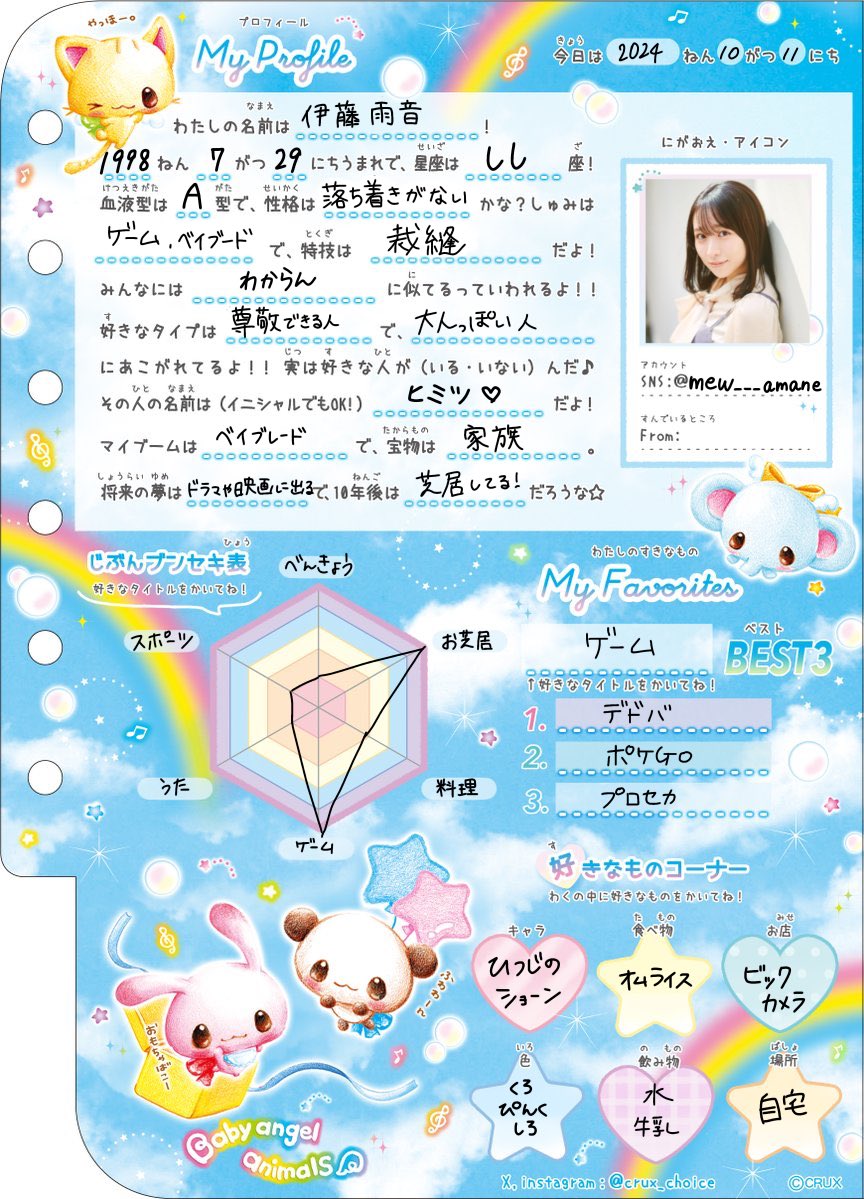 やっほー。
プロフィール
My Profile
きょう
今日は 2024 ねん 10 がつ 11 にち
なまえ
わたしの名前は 伊藤 雨音 !
せいざ ざ
1998 ねん 7 がつ 29 にちうまれで、星座は しし 座!
けつえきがた がた せいかく
血液型は A 型で、性格は 落ち着きがない かな?しゅみは
とくぎ
ゲーム、ベイブード で、特技は 裁縫 だよ!
に
みんなには わからん に似てるっていわれるよ!!
す
好きなタイプは 尊敬できる人 で、大人っぽい人
じつ す ひと
にあこがれてるよ!! 実は好きな人が(いる・いない)んだ♪
ひと なまえ
その人の名前は(イニシャルでもOK!) ヒミツ♡ だよ!
たからもの
マイブームは ベイブレード で、宝物は 家族 。
しょうらい ゆめ ねんご
将来の夢は ドラマや映画に出る で、10年後は 芝居してる! だろうな☆
にがおえ・アイコン
アカウント
SNS:@mew___amane
すんでいるところ
From:
ひょう
じぶんブンセキ表
好きなタイトルをかいてね!
べんきょう
スポーツ
お芝居
うた
料理
ゲーム
わたしのすきなもの
My Favorites
ゲーム
ベスト
BEST3
↑好きなタイトルをかいてね!
1. デドバ
2. ポケGO
3. プロセカ
す
好きなものコーナー
わくの中に好きなものをかいてね!
キャラ
ひつじの
ショーン
た もの
食べ物
オムライス
みせ
お店
ビック
カメラ
いろ
色
くろ
ぴんく
しろ
の もの
飲み物
水
牛乳
ばしょ
場所
自宅
ふわわーん
おもちゃばこー
Baby angel
animals
X, instagram : @crux_choice
©CRUX